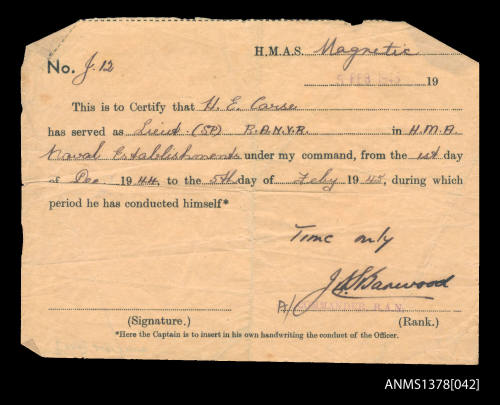 H.M.A.S. Magnetic
No. J.12
5 FEB 1945 19
This is to Certify that H. E. Carse
has served as Lieut (SP) R.A.N.V.R. in H.M.A.
Naval Establishments under my command, from the 1st day
of Dec 1944, to the 5th day of Feby 1945, during which
period he has conducted himself*
Time only
A/ COMMANDER R.A.N.
(Signature.) (Rank.)
*Here the Captain is to insert in his own handwriting the conduct of the Officer.
ANMS1378[042]